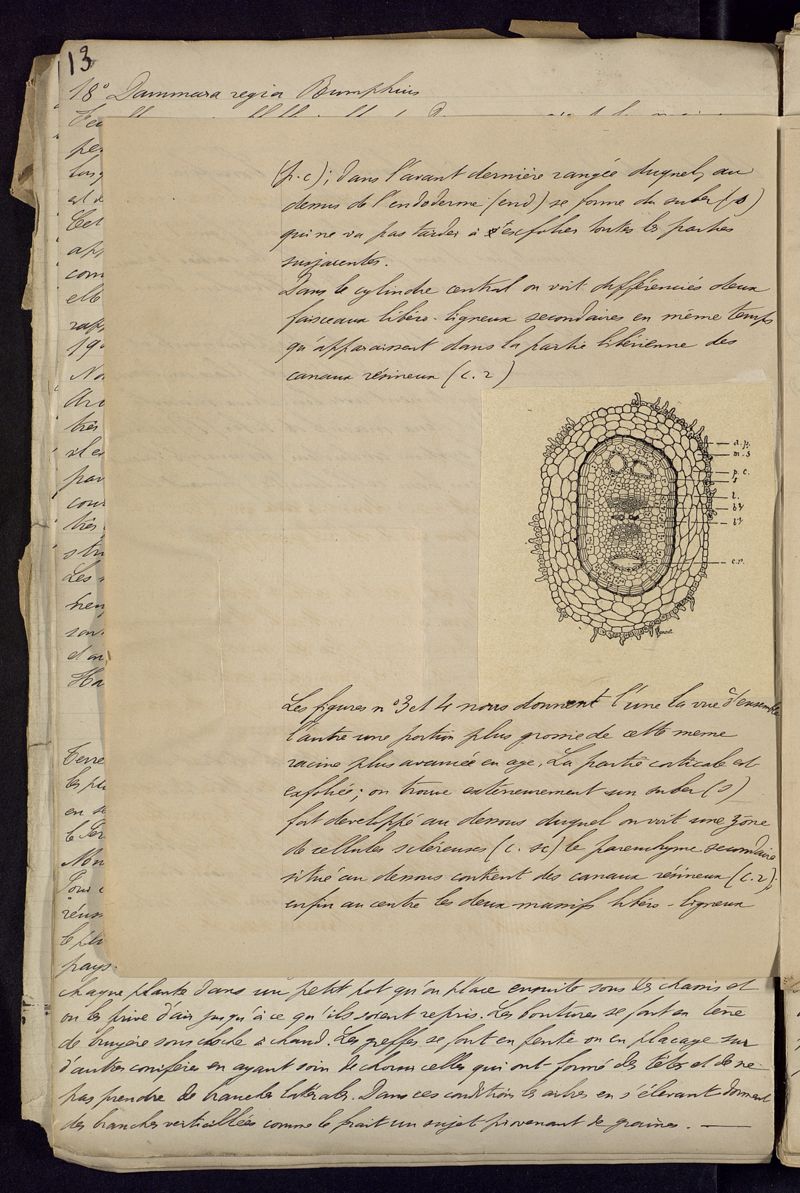 13
18° Dammara regia Rumphius
(p.c); dans l'avant dernière rangée duquel, au
dessus de l'endoderme (end) se forme du suber (s)
qui ne va pas tarder à s'exfolier toutes les parties
susjacentes.
Dans le cylindre central on voit différenciés deux
faisceaux libéro-ligneux secondaires en même temps
qu'apparaissent dans la partie libérienne des
canaux résineux (c.r)
a.p.
m.s
p.c.
s
l.
b²
b¹
c.r.
Les figures n° 3 et 4 nous donnent l'une la vue d'ensemble
l'autre une portion plus grossie de cette meme
racine plus avancée en age. La partie corticale est
exfoliée; on trouve extérieurement un suber (s)
fort developpé au dessous duquel on voit une zône
de cellules scléreuses (c. sc) le parenchyme secondaire
situé au dessous contient des canaux résineux (c.r),
enfin au centre les deux massifs libéro-ligneux
pays
chaque plante dans un petit pot qu'on place ensuite sous les chassis et
on les prive d'air jusqu'à ce qu'ils soient repris. Les boutures se font en terre
de bruyère sous cloche à chaud. Les greffes se font en fente ou en placage sur
d'autres conifères en ayant soin de choisir celles qui ont formé des têtes et de ne
pas prendre de branches latérales. Dans ces conditions les arbres en s'élevant donnent
des branches verticillées comme le ferait un sujet provenant de graines.